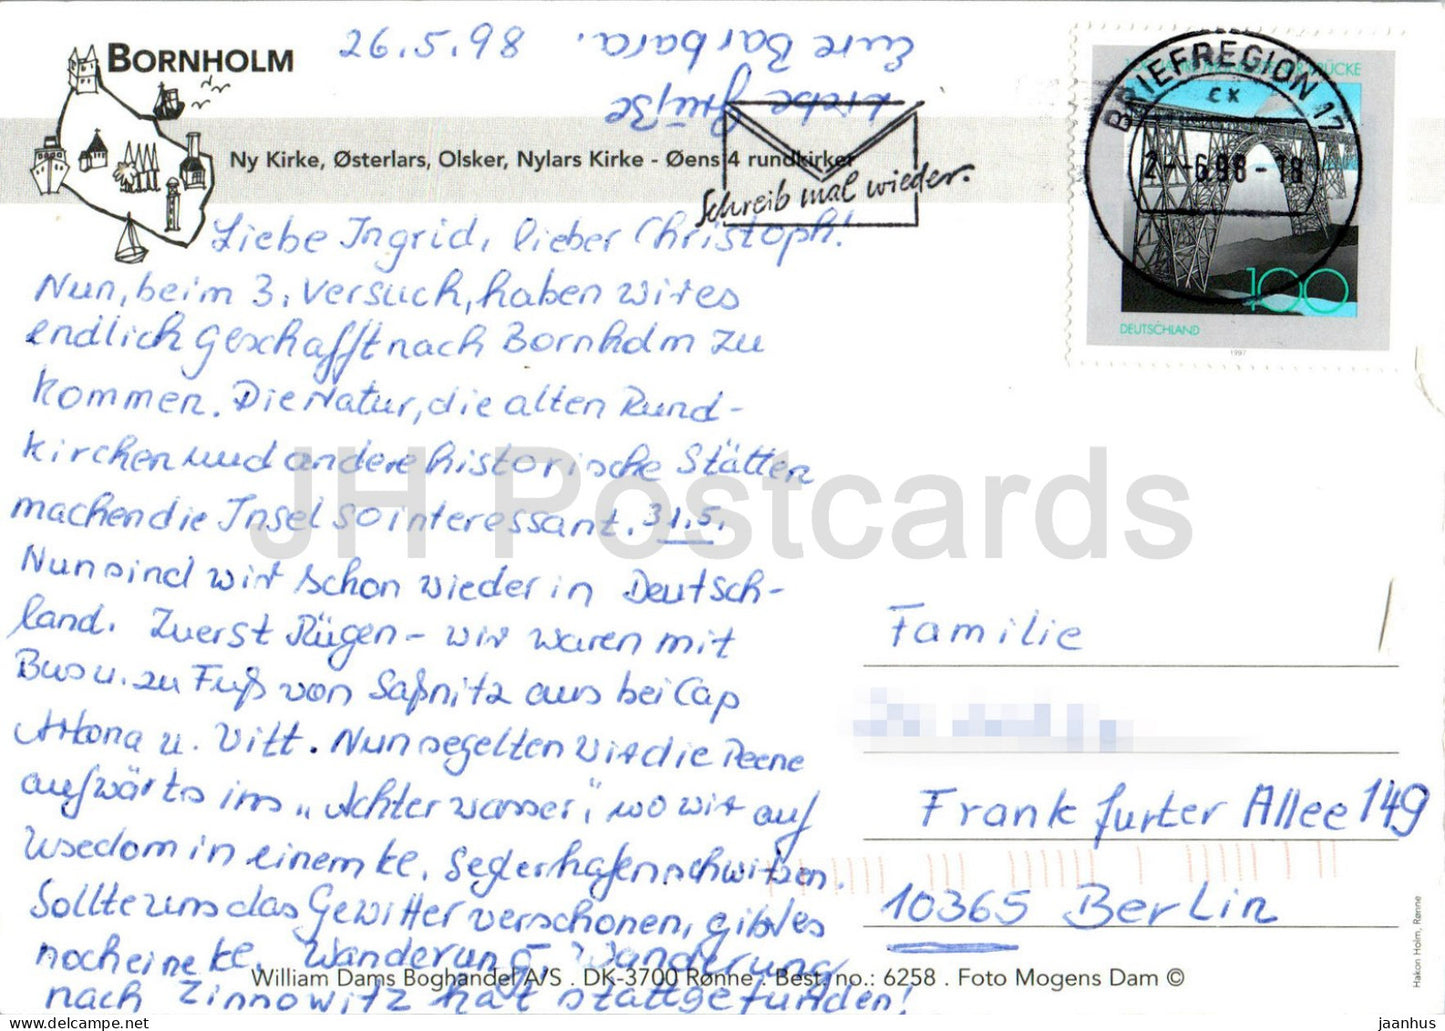 BORNHOLM
Ny Kirke, Østerlars, Olsker, Nylars Kirke - Øens 4 rundkirker
26.5.98
Liebe Grüße
Eure Barbara.
Schreib mal wieder.
BRIEFREGION 17
cx
2.-6.98-18
BRÜCKE
100
DEUTSCHLAND
1997
Liebe Ingrid, lieber Christoph!
Nun, beim 3. Versuch, haben wir es
endlich geschafft nach Bornholm zu
kommen. Die Natur, die alten Rund-
kirchen und andere historische Stätten
machen die Insel so interessant. 31.5.
Nun sind wir schon wieder in Deutsch-
land. Zuerst Rügen - wir waren mit
Bus u. zu Fuß von Saßnitz aus bei Cap
Arkona u. Vitt. Nun segelten wir die Peene
aufwärts ins „Achterwasser", wo wir auf
Usedom in einem kl. Seglerhafen schwitzen.
Sollte uns das Gewitter verschonen, gibt es
noch eine kl. Wanderung Wanderung
nach Zinnowitz hat stattgefunden!
JH Postcards
Familie
Frankfurter Allee 149
10365 Berlin
William Dams Boghandel A/S . DK-3700 Rønne . Best. no.: 6258 . Foto Mogens Dam ©
Håkon Holm, Rønne
jaanhus